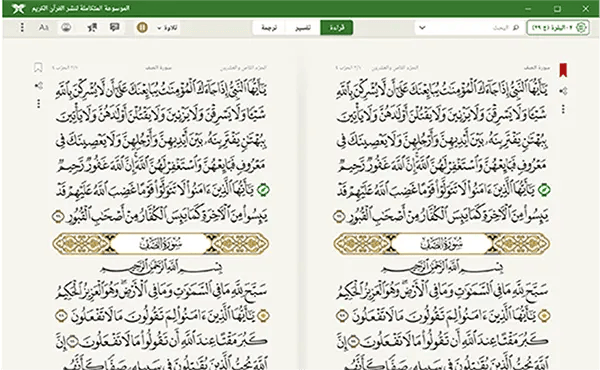 الموسوعة المتكاملة لنشر القرآن الكريم
٢- البقرة (ج ٢٩)
البحث
قراءة
تفسير
ترجمة
تلاوة
Aa
سورة الصف
الجزء الثامن والعشرين
يَٰٓأَيُّهَا ٱلنَّبِيُّ إِذَا جَآءَكَ ٱلْمُؤْمِنَٰتُ يُبَايِعْنَكَ عَلَىٰٓ أَن لَّا يُشْرِكْنَ بِٱللَّهِ
شَيْـًٔا وَلَا يَسْرِقْنَ وَلَا يَزْنِينَ وَلَا يَقْتُلْنَ أَوْلَٰدَهُنَّ وَلَا يَأْتِينَ
بِبُهْتَٰنٍ يَفْتَرِينَهُۥ بَيْنَ أَيْدِيهِنَّ وَأَرْجُلِهِنَّ وَلَا يَعْصِينَكَ فِى
مَعْرُوفٍ فَبَايِعْهُنَّ وَٱسْتَغْفِرْ لَهُنَّ ٱللَّهَ إِنَّ ٱللَّهَ غَفُورٌ رَّحِيمٌ
يَٰٓأَيُّهَا ٱلَّذِينَ ءَامَنُوا۟ لَا تَتَوَلَّوْا۟ قَوْمًا غَضِبَ ٱللَّهُ عَلَيْهِمْ قَدْ
يَئِسُوا۟ مِنَ ٱلْءَاخِرَةِ كَمَا يَئِسَ ٱلْكُفَّارُ مِنْ أَصْحَٰبِ ٱلْقُبُورِ
سُورَةُ الصَّفِّ
بِسْمِ ٱللَّهِ ٱلرَّحْمَٰنِ ٱلرَّحِيمِ
سَبَّحَ لِلَّهِ مَا فِى ٱلسَّمَٰوَٰتِ وَمَا فِى ٱلْأَرْضِ وَهُوَ ٱلْعَزِيزُ ٱلْحَكِيمُ
يَٰٓأَيُّهَا ٱلَّذِينَ ءَامَنُوا۟ لِمَ تَقُولُونَ مَا لَا تَفْعَلُونَ
كَبُرَ مَقْتًا عِندَ ٱللَّهِ أَن تَقُولُوا۟ مَا لَا تَفْعَلُونَ إِنَّ
ٱللَّهَ يُحِبُّ ٱلَّذِينَ يُقَٰتِلُونَ فِى سَبِيلِهِۦ صَفًّا كَأَنَّهُم
سورة الصف
الجزء الثامن والعشرين
يَٰٓأَيُّهَا ٱلنَّبِيُّ إِذَا جَآءَكَ ٱلْمُؤْمِنَٰتُ يُبَايِعْنَكَ عَلَىٰٓ أَن لَّا يُشْرِكْنَ بِٱللَّهِ
شَيْـًٔا وَلَا يَسْرِقْنَ وَلَا يَزْنِينَ وَلَا يَقْتُلْنَ أَوْلَٰدَهُنَّ وَلَا يَأْتِينَ
بِبُهْتَٰنٍ يَفْتَرِينَهُۥ بَيْنَ أَيْدِيهِنَّ وَأَرْجُلِهِنَّ وَلَا يَعْصِينَكَ فِى
مَعْرُوفٍ فَبَايِعْهُنَّ وَٱسْتَغْفِرْ لَهُنَّ ٱللَّهَ إِنَّ ٱللَّهَ غَفُورٌ رَّحِيمٌ
يَٰٓأَيُّهَا ٱلَّذِينَ ءَامَنُوا۟ لَا تَتَوَلَّوْا۟ قَوْمًا غَضِبَ ٱللَّهُ عَلَيْهِمْ قَدْ
يَئِسُوا۟ مِنَ ٱلْءَاخِرَةِ كَمَا يَئِسَ ٱلْكُفَّارُ مِنْ أَصْحَٰبِ ٱلْقُبُورِ
سُورَةُ الصَّفِّ
بِسْمِ ٱللَّهِ ٱلرَّحْمَٰنِ ٱلرَّحِيمِ
سَبَّحَ لِلَّهِ مَا فِى ٱلسَّمَٰوَٰتِ وَمَا فِى ٱلْأَرْضِ وَهُوَ ٱلْعَزِيزُ ٱلْحَكِيمُ
يَٰٓأَيُّهَا ٱلَّذِينَ ءَامَنُوا۟ لِمَ تَقُولُونَ مَا لَا تَفْعَلُونَ
كَبُرَ مَقْتًا عِندَ ٱللَّهِ أَن تَقُولُوا۟ مَا لَا تَفْعَلُونَ إِنَّ
ٱللَّهَ يُحِبُّ ٱلَّذِينَ يُقَٰتِلُونَ فِى سَبِيلِهِۦ صَفًّا كَأَنَّهُم